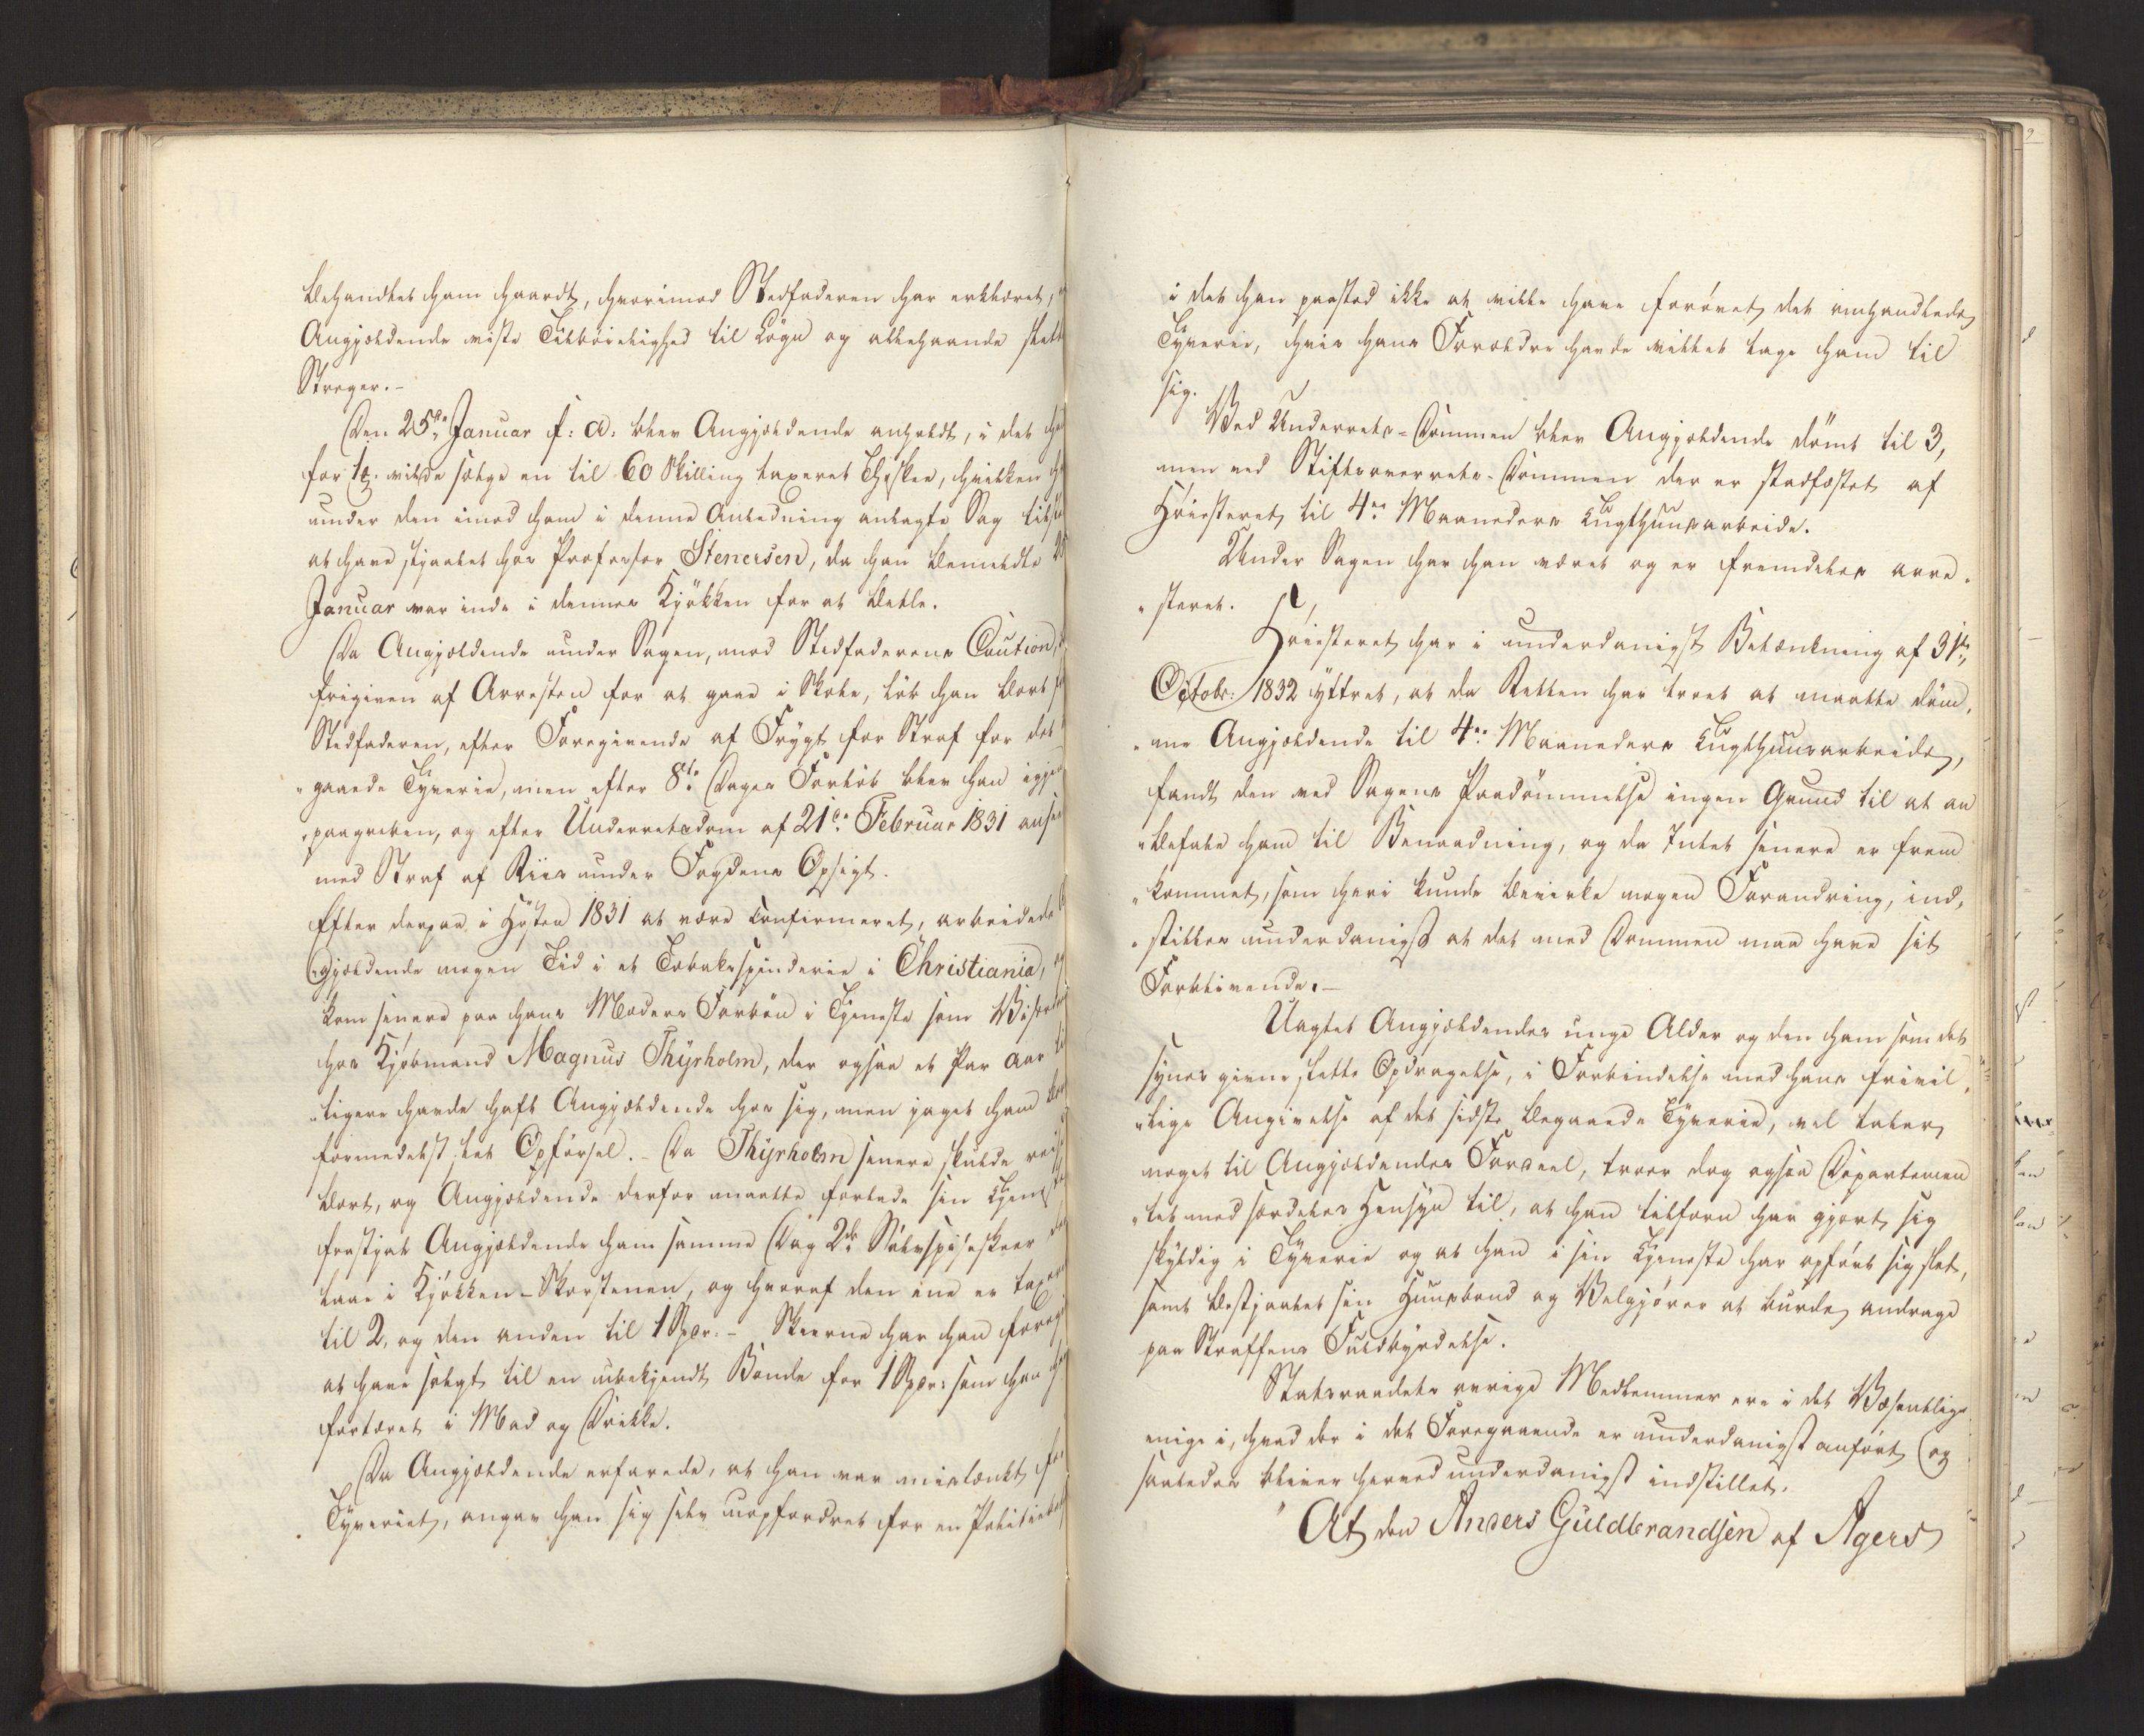 behandlet ham haardt, hvorimod Stedfaderen har erklæret,
Angjældende viste Tilbøielighed til Løgn og allehaande slette
Streger. -
Den 25de Januar f: A: blev Angjældende anholdt, i det han
for vilde sælge en til 60 Skilling taxeret Theskee, hvilken
under den imod ham i denne Anledning anlagte Sag
at have stjaalet hos Professor Stenersen, da han bemeldte 25
Januar var inde i dennes Kjøkken for at betle.
Da Angjældende under Sagen, mod Stedfaderens Caution,
frigiven af Arresten for at gaae i Skole, løb han bort
Stedfaderen, efter Foregivende af Frygt for Straf for det
"gaaede Tyverie, men efter 8te Dages Forløb blev han igjen
"paagreben, og efter Underretsdom af 21de Februar 1831 anseet
med Straf af Riis under Fogdens Opsigt.
Efter derpaa i Høsten 1831 at være confirmeret, arbeidede
"gjældende nogen Tid i et Tobaksspinderie i Christiania,
kom senere paa hans Moders Forbøn i Tjeneste som
hos Kjøbmand Magnus Thyrholm, der ogsaa et Par Aar
"ligere havde haft Angjældende hos sig, men jaget ham
formedelst slet Opførsel. - Da Thyrholm senere skulde reise
bort, og Angjældende derfor maatte forlade sin Tjeneste
frastjal Angjældende ham samme Dag 2de Sølvspiseskeer
laae i Kjøkken-Skorstenen, og hvoraf den ene er taxeret
til 2, og den anden til 1 Spdr: - Skeerne har han foregivet
at have solgt til en ubekjendt Bonde for 1 Spdr: som han
fortæret i Mad og Drikke.
Da Angjældende erfarede, at han var mistænkt for
Tyveriet, angav han sig selv uopfordret for en
i det han paastod ikke at ville have forøvet det omhandlede
Tyverie, hvis hans Forældre havde villet tage ham til
sig.
Ved Underrets-Dommen blev Angjældende dømt til 3,
men ved Stiftsoverrets-Dommen der er stadfæstet af
Høiesteret, til 4re Maaneders Tugthuusarbeide.
Under Sagen har han været og er fremdeles arre-
"steret.
Høiesteret har i underdanigst Betænkning af 31te
Octobr: 1832 yttret, at da Retten har troet at maatte døm-
"me Angjældende til 4re Maaneders Tugthuusarbeide,
fandt den ved Sagens Paadømmelse ingen Grund til at an
"befale ham til Benaadning, og da Intet senere er frem
"kommet, som heri kunde bevirke nogen Forandring, ind-
"stilles underdanigst at det med Dommen maa have sit
Forblivende. -
Uagtet Angjældendes unge Alder og den ham som det
synes givne slette Opdragelse, i Forbindelse med hans frivil-
"lige Angivelse af det sidste begaaede Tyverie, vel taler
noget til Angjældendes Fordeel, troer dog ogsaa Departemen
"tet med særdeles Hensyn til, at han tilforn har gjort sig
skyldig i Tyverie og at han i sin Tjeneste har opført sig slet,
samt bestjaalet sin Huusbond og Velgjører at burde andrage
paa Straffens Fuldbyrdelse.
Statsraadets øvrige Medlemmer ere i det Væsentlige
enige i, hvad der i det Foregaaende er underdanigst anført (og
saaledes bliver herved underdanigst indstillet.
"At den Anders Guldbrandsen af Agers